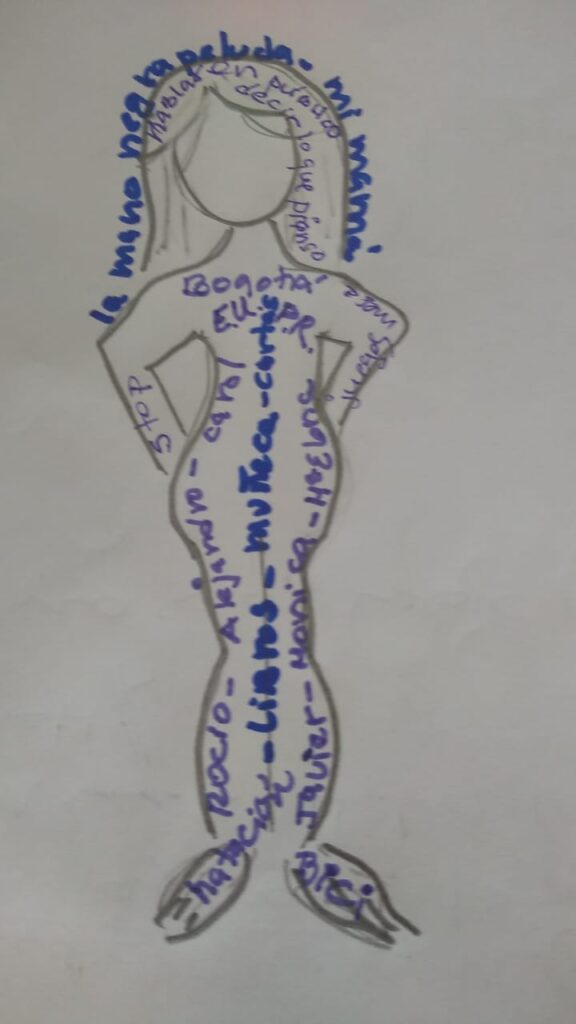 la mano negra peluda - mi mamá
hablar en público
decir lo que pienso
Bogotá
E.U. P.R.
juegos mesa
Stop
Rocío - Alejandro - Carol
Libros - muñeca - cortas
Javier - Monica - Helena
natación
Bici